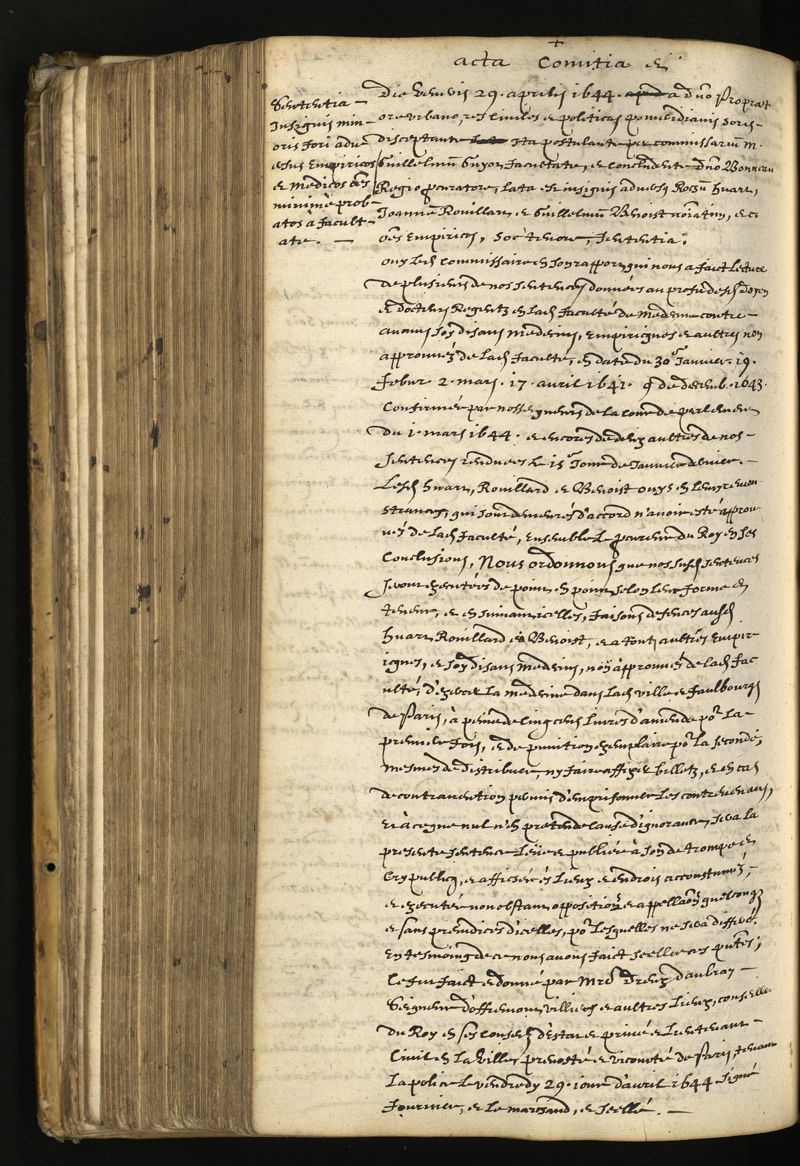 acta Comitia et
Sententia
Insignis min-
oris fori adve
rsus Empiricos
et medicos oēs
minimè prob-
atos à facult-
ate. —
Die Veneris 29. aprilis 1644. a dno Proprat
ore urbano, res civiles et politicas pomeridianis horis
disceptante Ita postulante per commissarium M.
Guillelmū Guyon facultate, et concludente dno Bonneau
Regio procuratore, lata est insignis adversq Huart,
Joannē Rouillart, et Guillelmū Benoist noīatim, et c̄
oēs Empiricos, hoc tenore, sententia.
ouy led Commissaire en son rapport, qui nous a faict lecture
de plusieurs de nos sentences données au profit desd Doyen
et docteurs Regents en lad faculté de medecine contre
aucuns soy disans medecins, empiriques et aultres non
approuvéz de lad faculté, en date du 30 Janvier. 19.
febur 2. mars. 17. avril 1641. 9 de decemb. 1643.
Confirmée par nosseigneurs de la Cour de parlement
du 1. mars 1644. et encores de deux aultres de nos
sentences rendues le 15 Jour de Janvier dernier. —
Lesd huart, Rouillard et Benoist ouys en leurs remon
strances, qui sont demeurés d'accord n'avoir esté approu
vés de lad faculté, Ensemble le procureur du Roy en ses
Conclusions, Nous ordonnons que nosd sentences
seront executées de point en point selon leur forme et
teneur, et en suivant icelles, faisons defences ausd
huart, Rouillard et Benoist, et a tout aultres Empir
iques, et soy disans medecins, non approuvés de lad fac
ulté, d'exercer la medecine dans lad ville et faulbourgs
de Paris, à peine de cinq cens livres d'amende por la
premiere fois, et de punition exemplaire por la seconde,
mesmes de distribuer, ny faire affixer billets, et en cas
de contravention permis d'emprisonner les contrevenans,
et à ce que nul n'en pretende cause d'ignorance, sera la
presente sentence leüe et publiée à son de trompe et
Cry public, et affichée és lieux et endrois accoustuméz,
et executée non obstant opposition et appellaōn quelconq
et sans preiudices d'icelles, por lesquelles ne sera differé.
En tesmoing de ce nous avons faict sceller ces pntes,
Ce fut faict et donné par Mre Dreux d'aubray —
Seigneur d'offemont, villiers et aultres lieux, conseiller
du Roy en ses Conseils d'Estat et privé et Lieutenant —
Civil en la ville, prevosté et vicomté de Paris, tenant
la police le vendredy 29. jour d'avril 1644. signé
fournier, et le marchand, et scellé. —